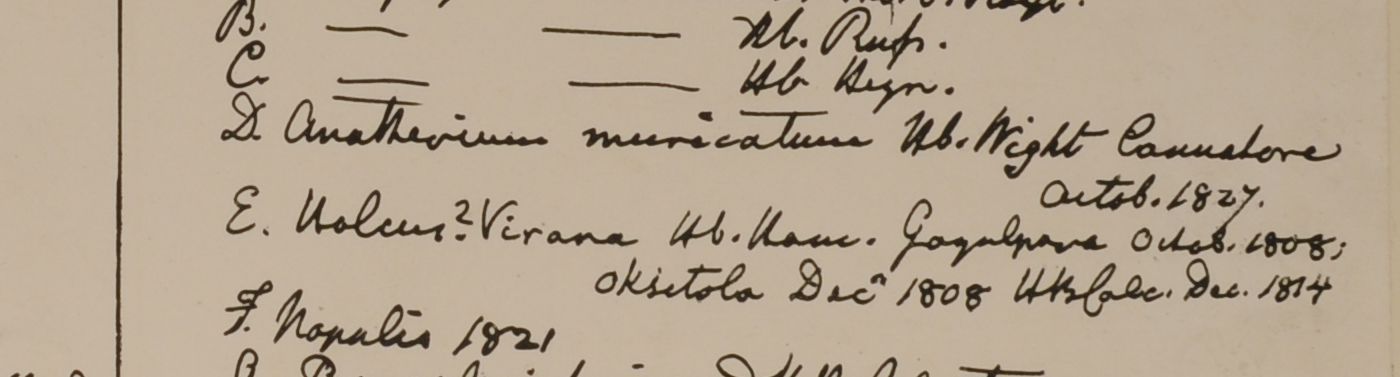 B. — — Hb. Russ.
C. — — Hb Heyn.
D. Anatherium muricatum Hb. Wight Cannatore
Octob. 1827.
E. Holcus? Virana Hb. Ham. Goyalpara Octob. 1808;
Oksitola Decr 1808 HBCalc. Dec. 1814
F. Napalia 1821